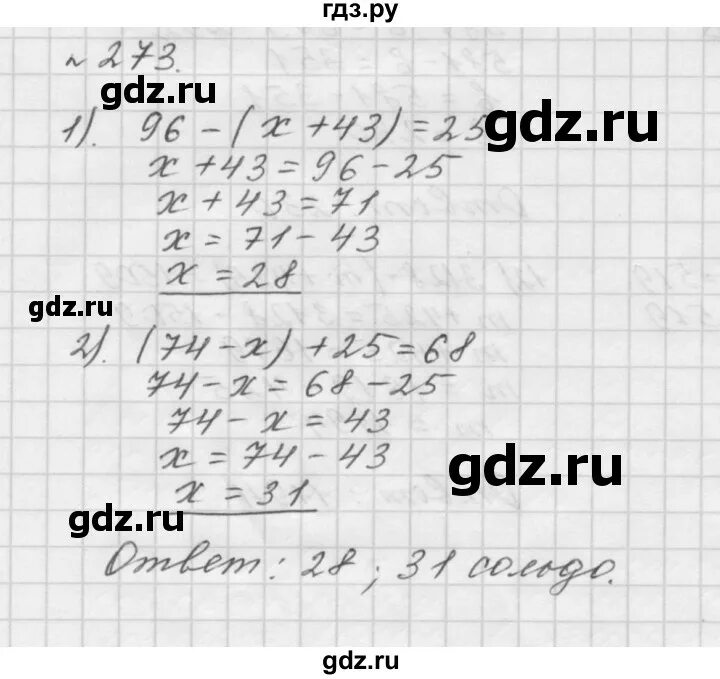 гдз.ру
№ 273.
gdz.ru
1). 96 - (x + 43) = 25
gdz.ru
x + 43 = 96 - 25
x + 43 = 71
x = 71 - 43
x = 28
gdz.ru
2). (74 - x) + 25 = 68
74 - x = 68 - 25
74 - x = 43
x = 74 - 43
gdz.ru
x = 31
gdz.ru
Ответ: 28; 31 сольдо.
gdz.ru